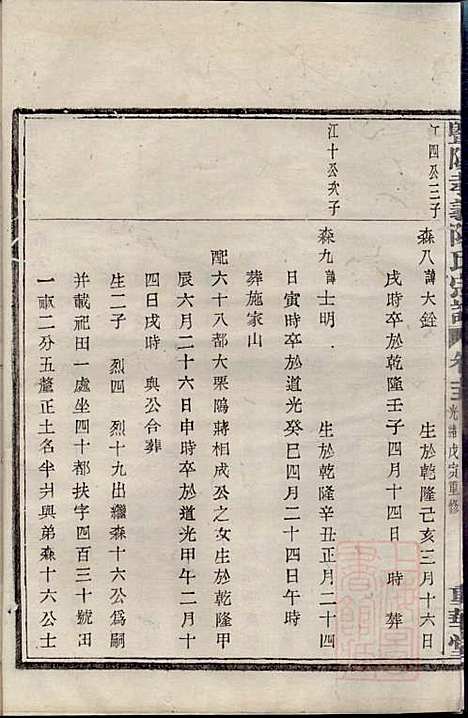 暨陽孝義陳氏宗譜 卷十三 光緒戊寅重修
江四公三子
森八諱大銓 生於乾隆己亥三月十六日
戌時卒於乾隆壬子四月十四日 時 葬
江十公次子
森九諱士明 生於乾隆辛丑正月二十四
日寅時卒於道光癸巳四月二十四日午時
葬施家山
配六十八都大栗隖蔣相成公之女生於乾隆甲
辰六月二十六日申時卒於道光甲午二月十
四日戌時 與公合葬
生二子 烈四 烈十九出繼森十六公爲嗣
並載祀田一處坐四十都扶字四百三十號田
一畝二分五釐正土名半爿與弟森十六公士